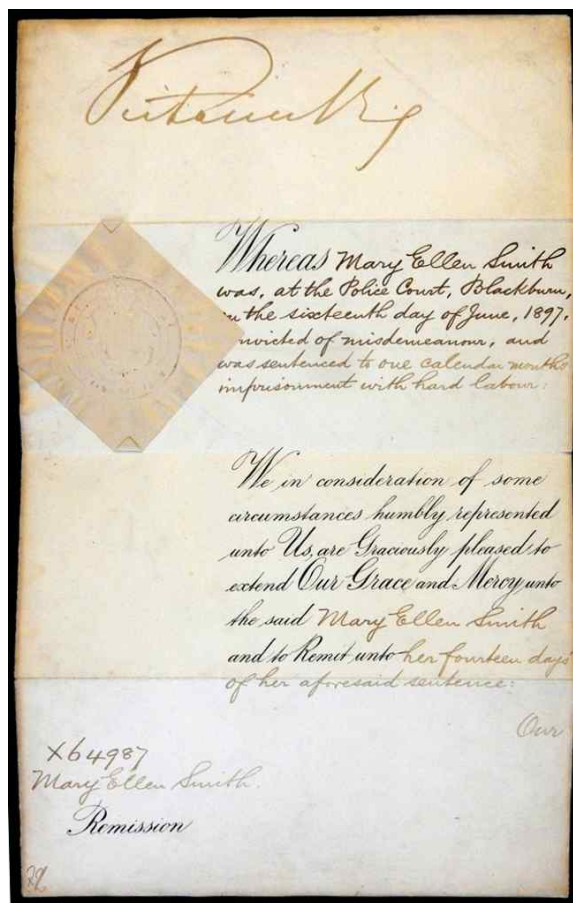 Victoria R I
Whereas Mary Ellen Smith
was, at the Police Court, Blackburn,
on the sixteenth day of June, 1897,
convicted of misdemeanour, and
was sentenced to one calendar months
imprisonment with hard labour:
We in consideration of some
circumstances humbly represented
unto Us, are Graciously pleased to
extend Our Grace and Mercy unto
the said Mary Ellen Smith
and to Remit unto her fourteen days
of her aforesaid sentence:
Our
X64987
Mary Ellen Smith.
Remission